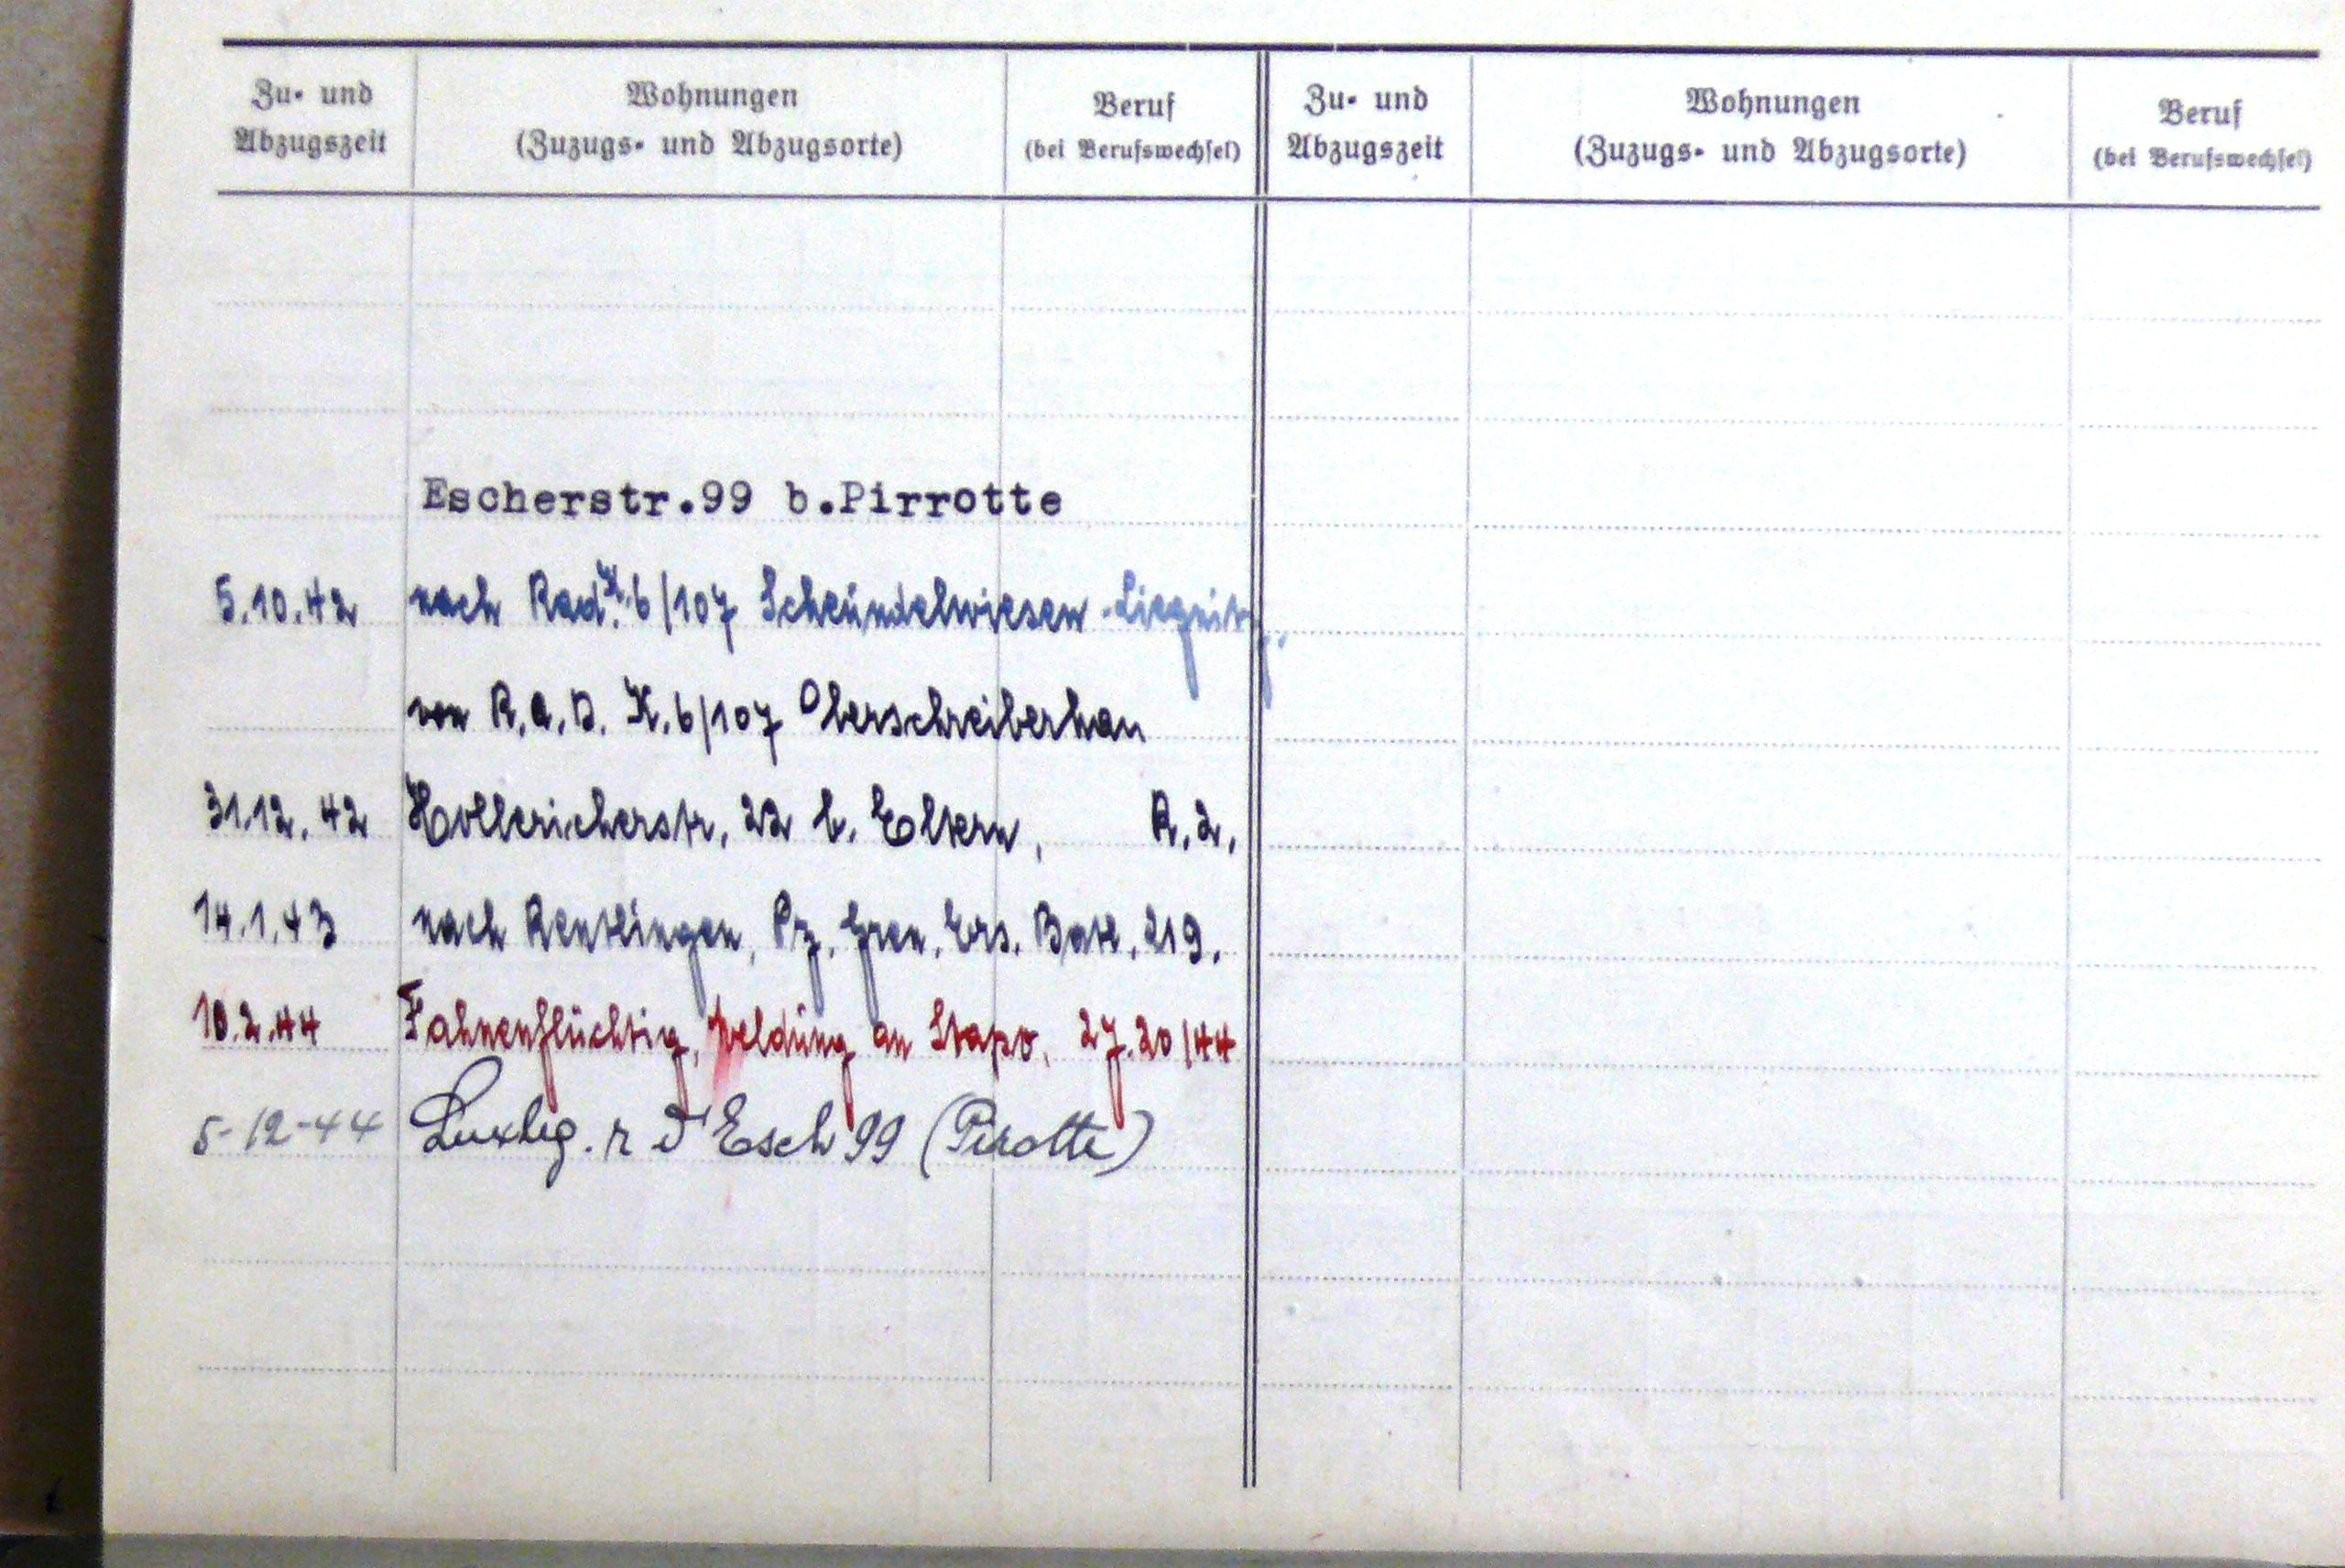 Zu- und Abzugszeit
Wohnungen (Zuzugs- und Abzugsorte)
Beruf (bei Berufswechsel)
Zu- und Abzugszeit
Wohnungen (Zuzugs- und Abzugsorte)
Beruf (bei Berufswechsel)
Escherstr.99 b.Pirrotte
5.10.42 nach Rad. K. 6/107 -Liegnitz.
von R.A.D. K. 6/107 Oberschreiberhau
31.12.42 Hollericherstr. 22 b. Eltern, R.2.
14.1.43 nach Reutlingen, Pz. Gren. Ers. Batl. 219.
10.2.44 Fahnenflüchtig, Meldung an Stapo. 27.20/44
5-12-44 Luxbg. r d'Esch 99 (Pirotte)